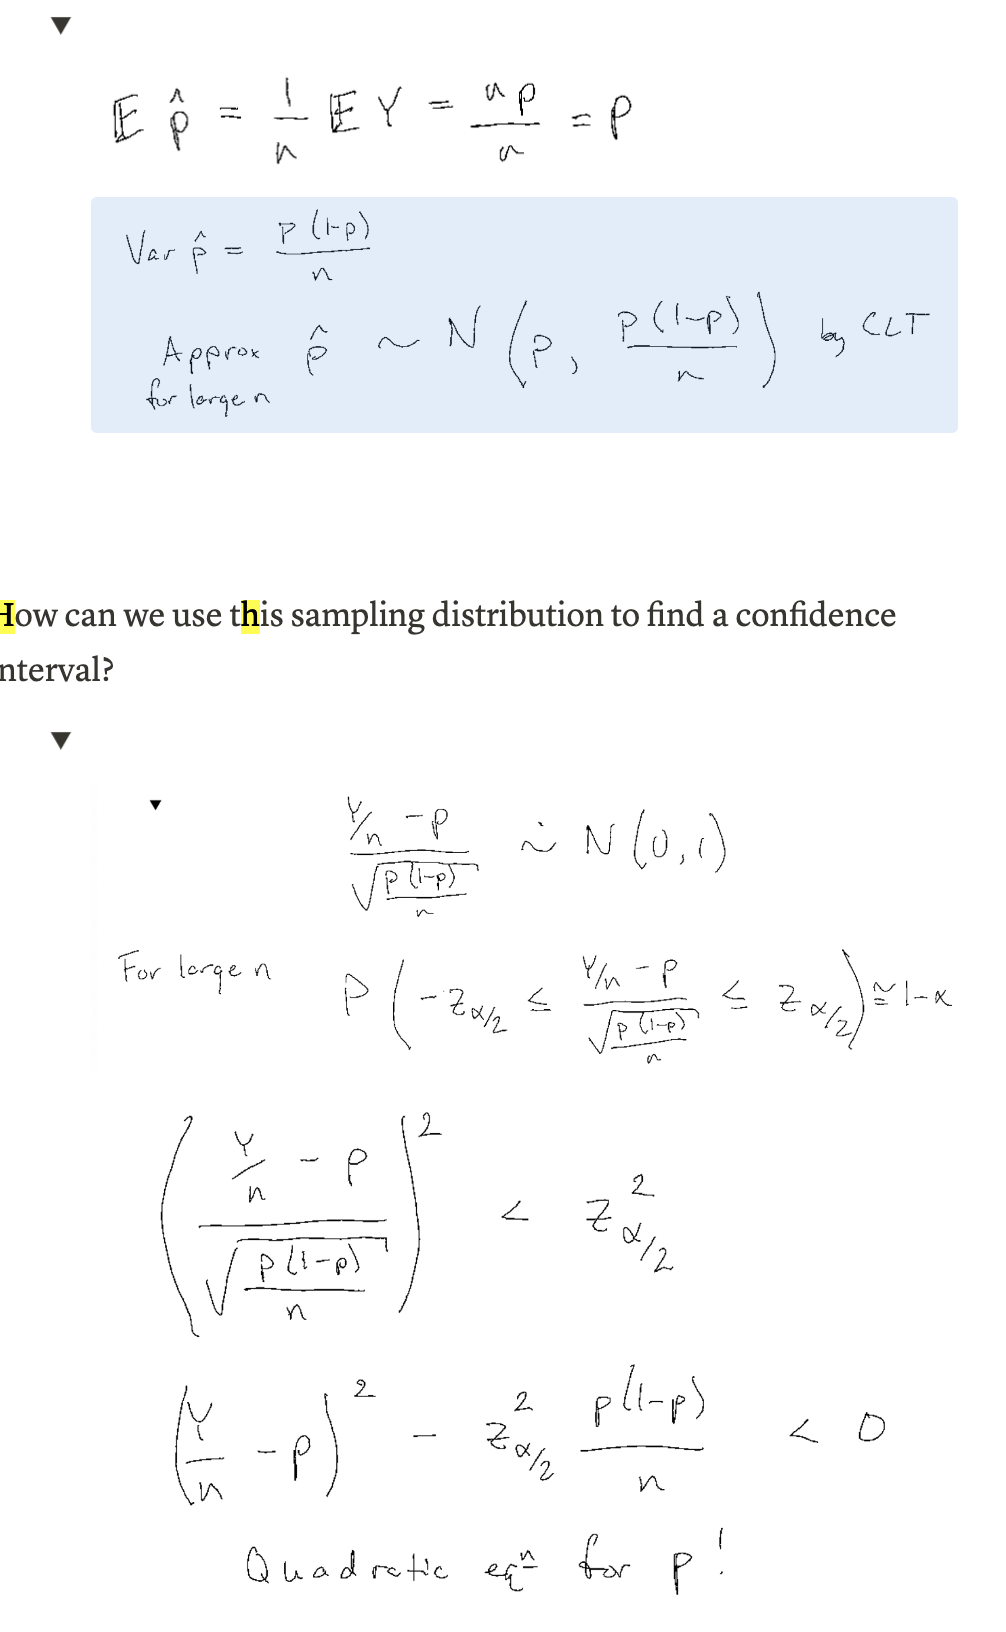 E p̂ = 1/n E Y = np/n = p
Var p̂ = p(1-p)/n
Approx for large n p̂ ~ N(p, p(1-p)/n) by CLT
How can we use this sampling distribution to find a confidence
nterval?
(Y/n - p)/√(p(1-p)/n) ∼̇ N(0,1)
For large n P(-z_α/2 ≤ (Y/n - p)/√(p(1-p)/n) ≤ z_α/2) ≅ 1-α
((Y/n - p)/√(p(1-p)/n))² < z²_α/2
(Y/n - p)² - z²_α/2 p(1-p)/n < 0
Quadratic eqⁿ for p!